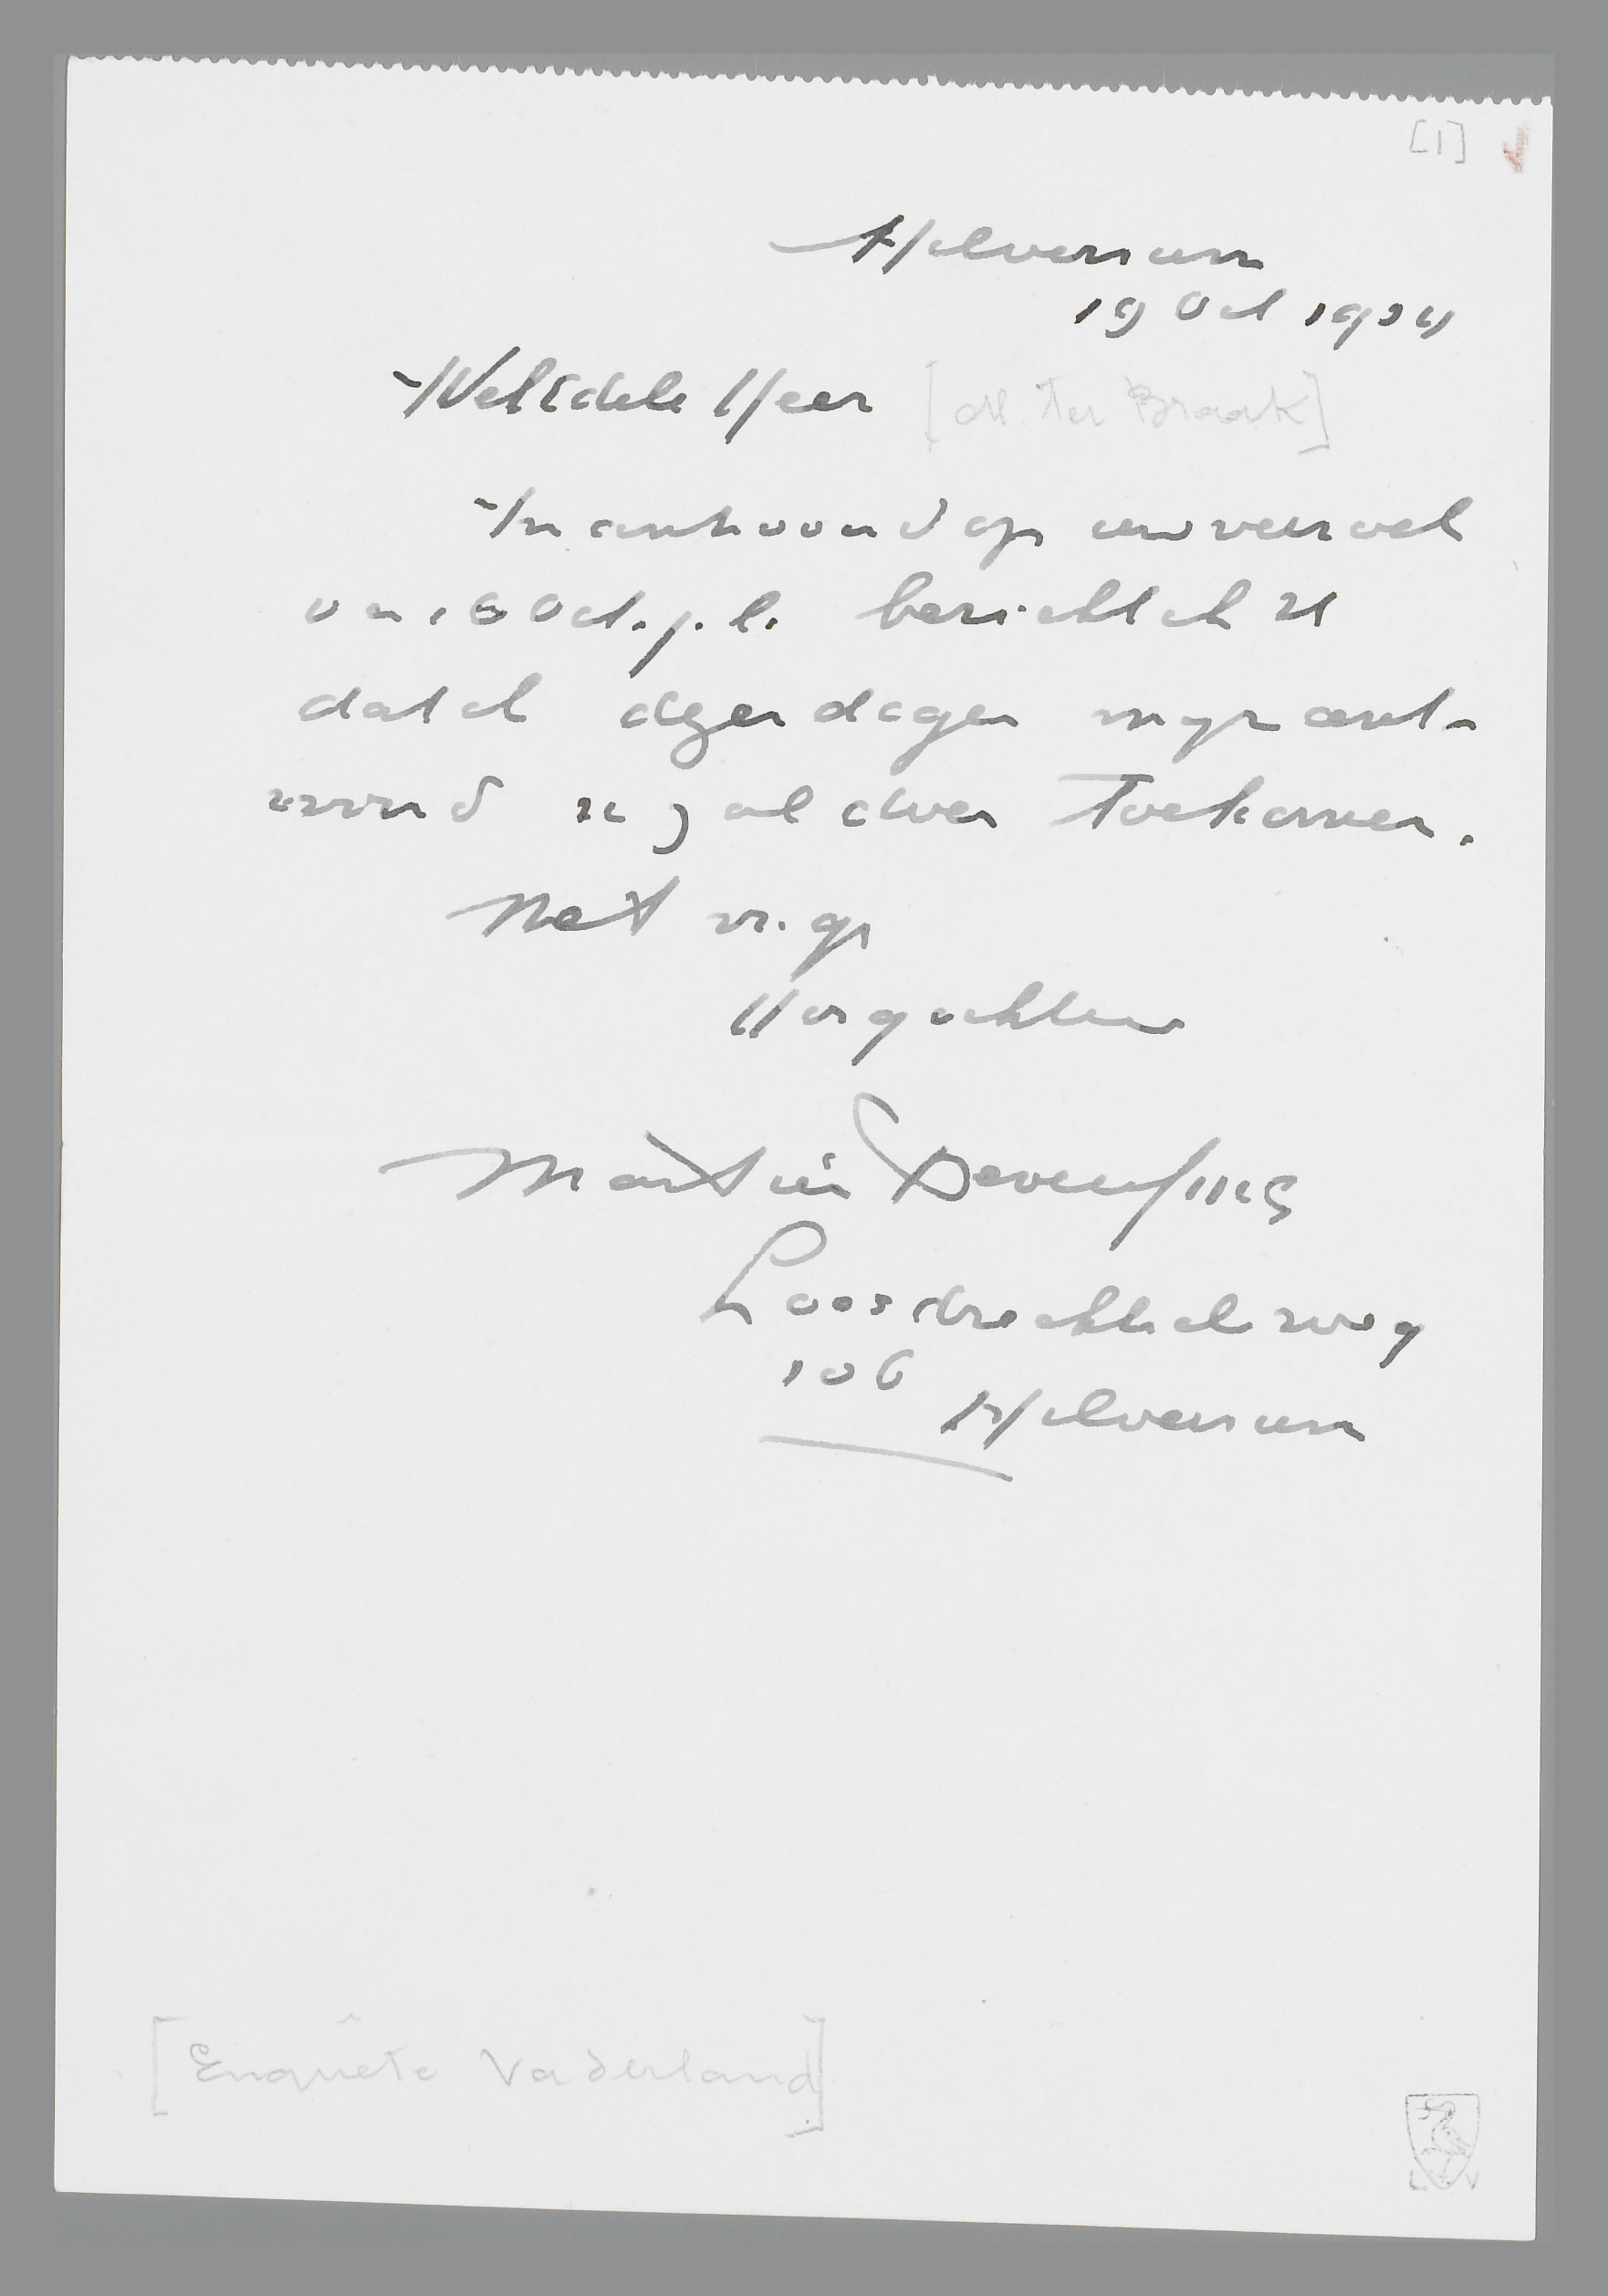 [1]
Hilversum
19 Oct 1934
WelEdele Heer [M. Ter Braak]
In antwoord op uw
van 16 Oct. j.l. bericht ik U
dat ik dezer dagen mijn ant-
woord u zal doen toekomen.
Met vr. gr
Hoogachtend
Loosdrechtsche weg
106 Hilversum
[Enquête Vaderland]